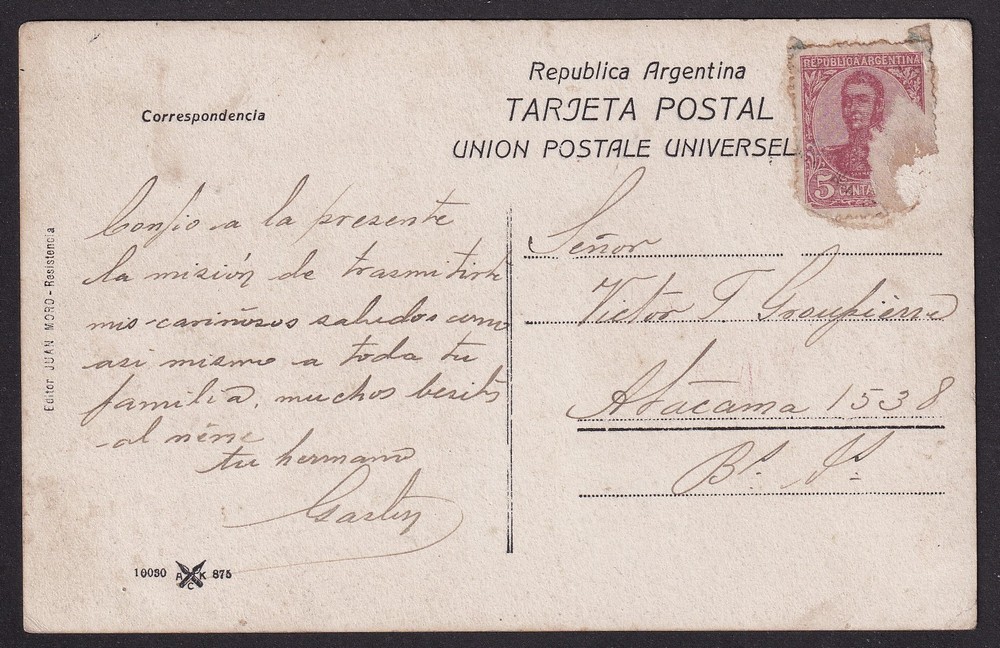 Republica Argentina
TARJETA POSTAL
UNION POSTALE UNIVERSEL
Correspondencia
REPUBLICA ARGENTINA
5 CENTA
Editor JUAN MORO - Resistencia
Confio a la presente
la misión de trasmitirte
mis cariñosos saludos como
asi mismo a toda tu
familia, muchos besitos
al néne
tu hermano
Gastón
Señor
Victor T.
Atacama 1538
Bs. As.
10030 ACK 875